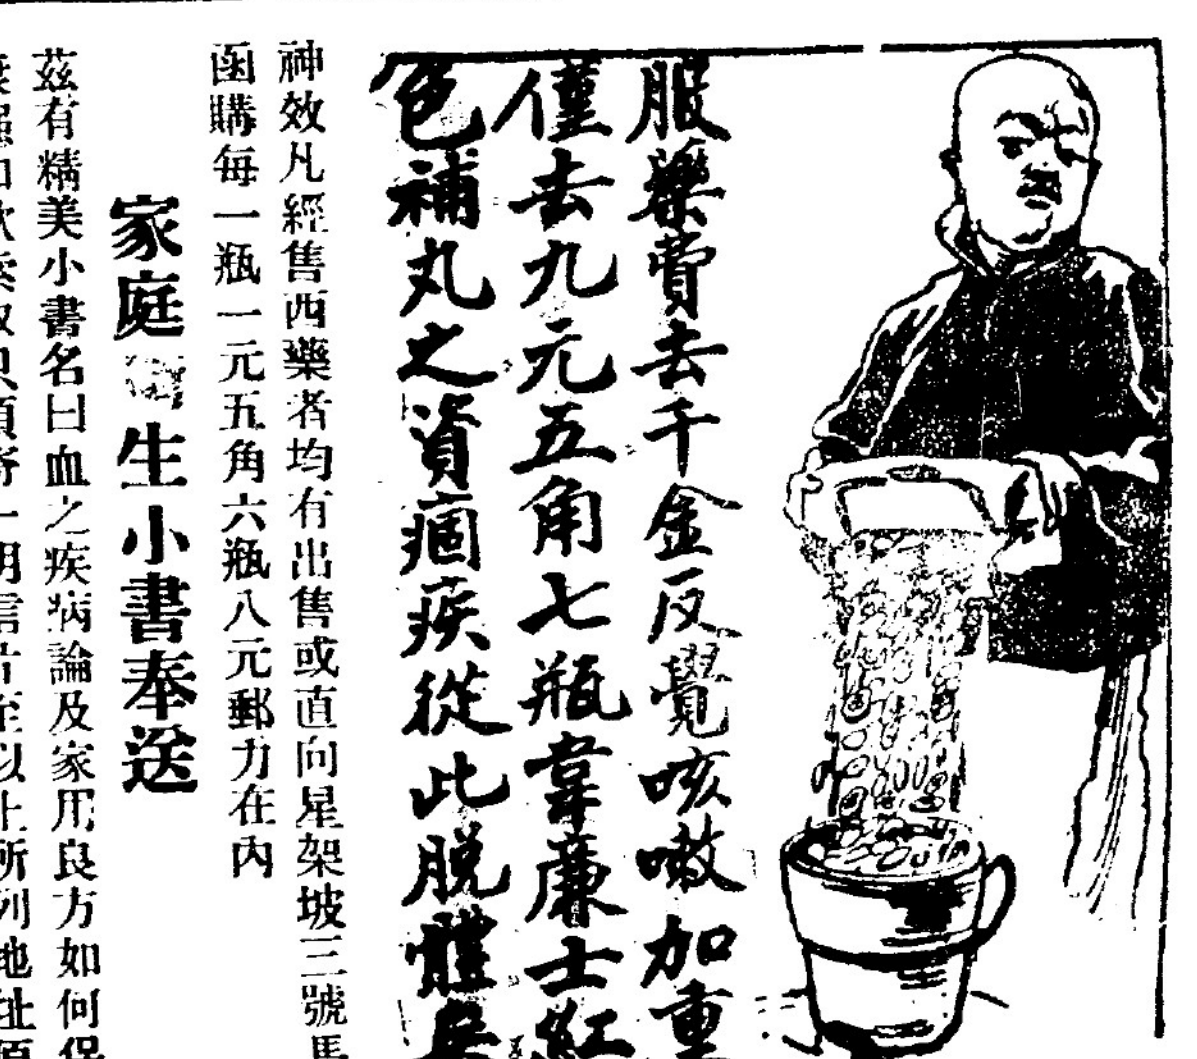 服藥費去千金反覺咳嗽加重
僅去九元五角七瓶韋廉士紅
色補丸之資痼疾從此脫體
神效凡經售西藥者均有出售或直向星架坡三號
函購每一瓶一元五角六瓶八元郵力在內
家庭 生小書奉送
茲有精美小書名曰血之疾病論及家用良方如何保
明信片 至以上所列地址